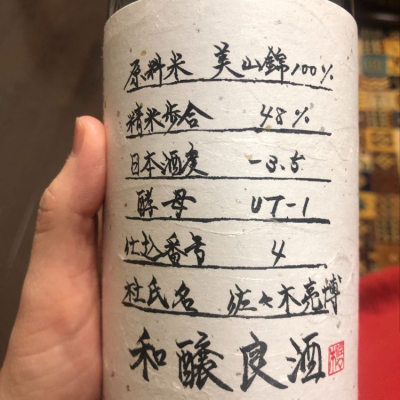 原料米 美山錦100%
精米歩合 48%
日本酒度 -3.5
酵母 UT-1
仕込番号 4
杜氏名 佐々木亮博
和醸良酒